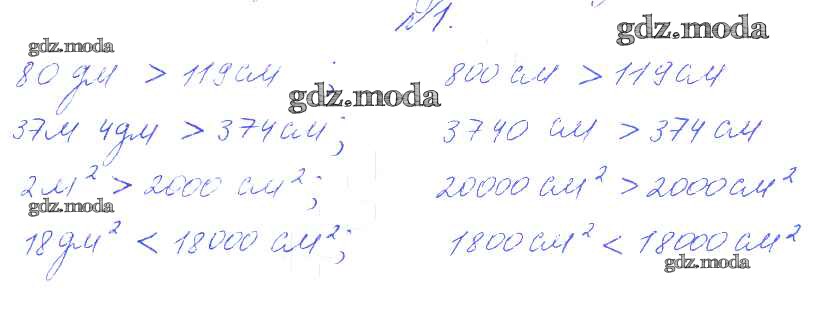 №1.
gdz.moda
gdz.moda
80 дм > 119 см ; 800 см > 119 см
gdz.moda
37м 4дм > 374 см ; 3740 см > 374 см
2 м² > 2000 см² ; 20000 см² > 2000 см²
gdz.moda
18 дм² < 18000 см² ; 1800 см² < 18000 см²
gdz.moda